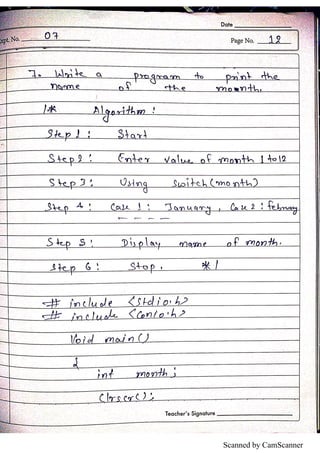 Date
Expt. No. 07
Page No. 12
7. Write a program to print the
name of the moenth.
/* Algorithm :
Step 1 : Start
Step 2 : Enter value of month 1 to 12
Step 3 : Using Switch (month)
Step 4 : Case 1 : January, Case 2 : february
Step 5 : Display name of month.
Step 6 : Stop. */
# include <stdio.h>
# include <conio.h>
Void main ()
{
int month ;
Clrscr();
Teacher's Signature
Scanned by CamScanner